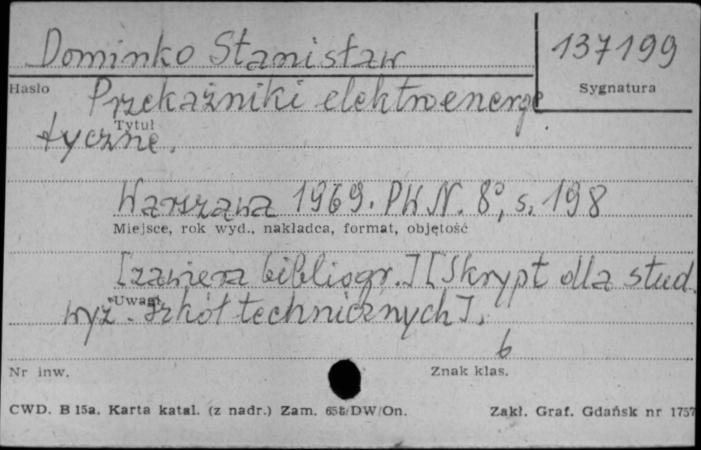 Dominko Stanisław
137199
Hasło
Sygnatura
Przekaźniki elektroenerge
Tytuł
tyczne.
Warszawa 1969. PWN. 8°, s. 198
Miejsce, rok wyd., nakładca, format, objętość
[zawiera bibliogr.] [Skrypt dla stud.
Uwagi
wyż. szkół technicznych].
6
Nr inw.
Znak klas.
CWD. B 15a. Karta katal. (z nadr.) Zam. 658/DW/On.
Zakł. Graf. Gdańsk nr 1757